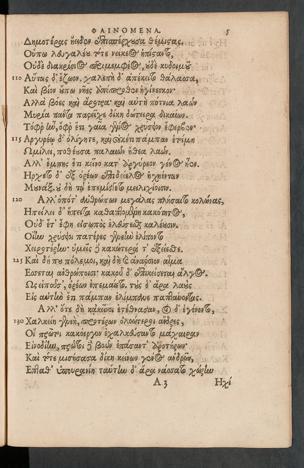 ΦΑΙΝΟΜΕΝΑ. 5
Δημοτέρας ἤειδεν ἐπισπέρχουσα θέμιστας.
Οὔπω λευγαλέου τότε νείκεος ἠπίσταντο,
Οὐδὲ διακρίσιος πολυμεμφέος, οὐδὲ κυδοιμοῦ
110 Αὕτως δ' ἔζωον. χαλεπὴ δ' ἀπέκειτο θάλασσα,
Καὶ βίον οὔπω νῆες ἀπόπροθεν ἠγίνεσκον
Ἀλλὰ βόες καὶ ἄροτρα καὶ αὐτὴ πότνια λαῶν
Μυρία πάντα παρεῖχε δίκη δώτειρα δικαίων.
Τόφρ' ἦν, ὄφρ' ἔτι γαῖα γένος χρύσειον ἔφερβεν·
115 Ἀργυρέῳ δ' ὀλίγη τε, καὶ οὐκέτι πάμπαν ἑτοίμη
Ὡμίλει, ποθέουσα παλαιῶν ἤθεα λαῶν.
Ἀλλ' ἔμπης ἔτι κεῖνο κατ' ἀργύρεον γένος ἦεν.
Ἤρχετο δ' ἐξ ὀρέων ὑποδείελος ἠχηέντων
Μουνάξ· οὐδέ τεῳ ἐπεμίσγετο μειλιχίοισιν.
120 Ἀλλ' ὁπότ' ἀνθρώπων μεγάλας πλήσαιτο κολώνας,
Ἠπείλει δ' ἤπειτα καθαπτομένη κακότητος,
Οὐδ' ἔτ' ἔφη εἰσωπὸς ἐλεύσεσθαι καλέουσιν.
Οἵην χρύσειοι πατέρες γενεὴν ἐλίποντο
Χειροτέρην· ὑμεῖς δὲ κακώτερα τεξείεσθε.
125 Καὶ δή που πόλεμοι, καὶ δὴ καὶ ἀνάρσιον αἷμα
Ἔσσεται ἀνθρώποισι· κακοῦ δ' ἐπικείσεται ἄλγος.
Ὣς εἰποῦσ', ὀρέων ἐπεμαίετο, τοὺς δ' ἄρα λαοὺς
Εἰς αὐτὴν ἔτι πάμπαν ἐλίμπανε παπταίνοντας.
Ἀλλ' ὅτε δὴ κἀκεῖνοι ἐτέθνασαν, οἱ δ' ἐγένοντο,
130 Χαλκείη γενεὴ, προτέρων ὀλοώτεροι ἄνδρες,
Οἳ πρῶτοι κακόεργον ἐχαλκεύσαντο μάχαιραν
Εἰνοδίην, πρῶτοι δὲ βοῶν ἐπάσαντ' ἀροτήρων·
Καὶ τότε μισήσασα δίκη κείνων γένος ἀνδρῶν,
Ἔπταθ' ὑπουρανίη· ταύτην δ' ἄρα νάσσατο χώρην
A 3 Ἧχί